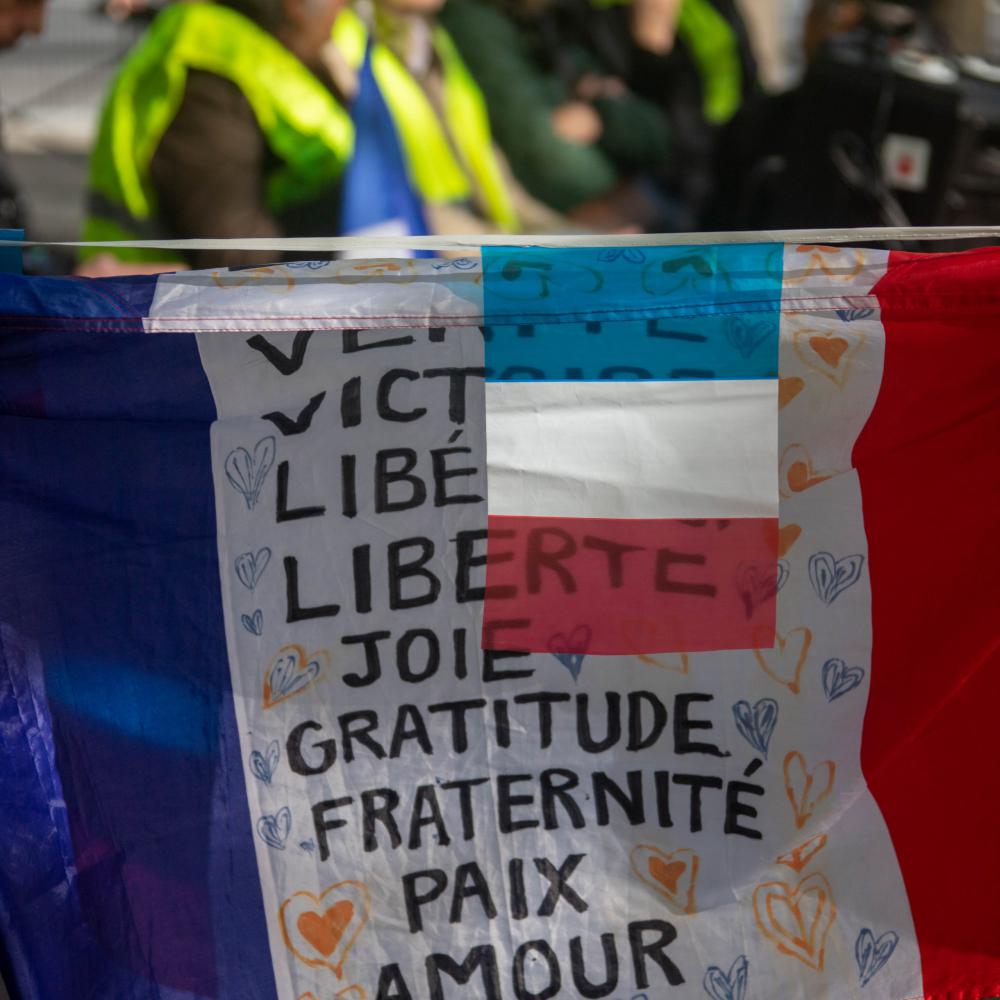 VÉRITÉ
VICTOIRE
LIBÉ
LIBERTÉ
JOIE
GRATITUDE
FRATERNITÉ
PAIX
AMOUR